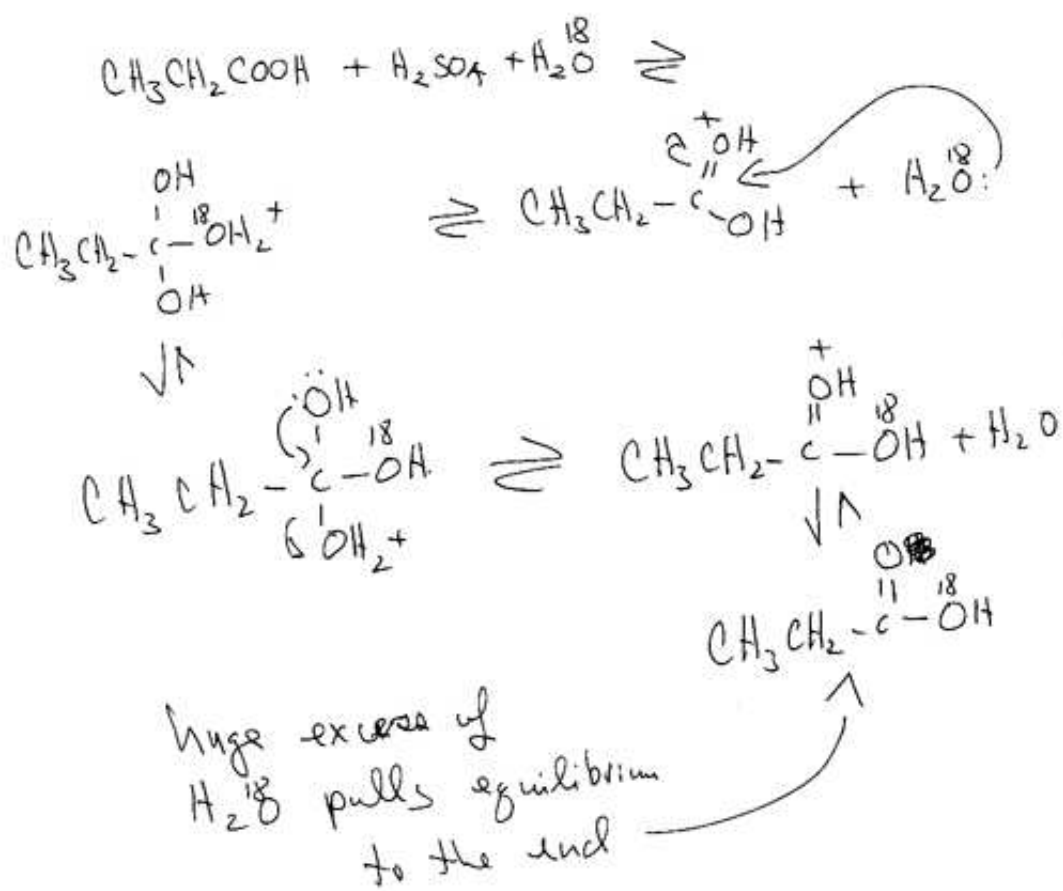 CH₃CH₂COOH + H₂SO₄ + H₂¹⁸O ⇌
CH₃CH₂-C(=⁺OH)-OH + H₂¹⁸O:
⇌
CH₃CH₂-C(OH)(OH)-¹⁸OH₂⁺
⇌
CH₃CH₂-C(:ÖH)(OH₂⁺)-¹⁸OH ⇌ CH₃CH₂-C(=⁺OH)-¹⁸OH + H₂O
⇌
CH₃CH₂-C(=O)-¹⁸OH
huge excess of
H₂¹⁸O pulls equilibrium
to the end